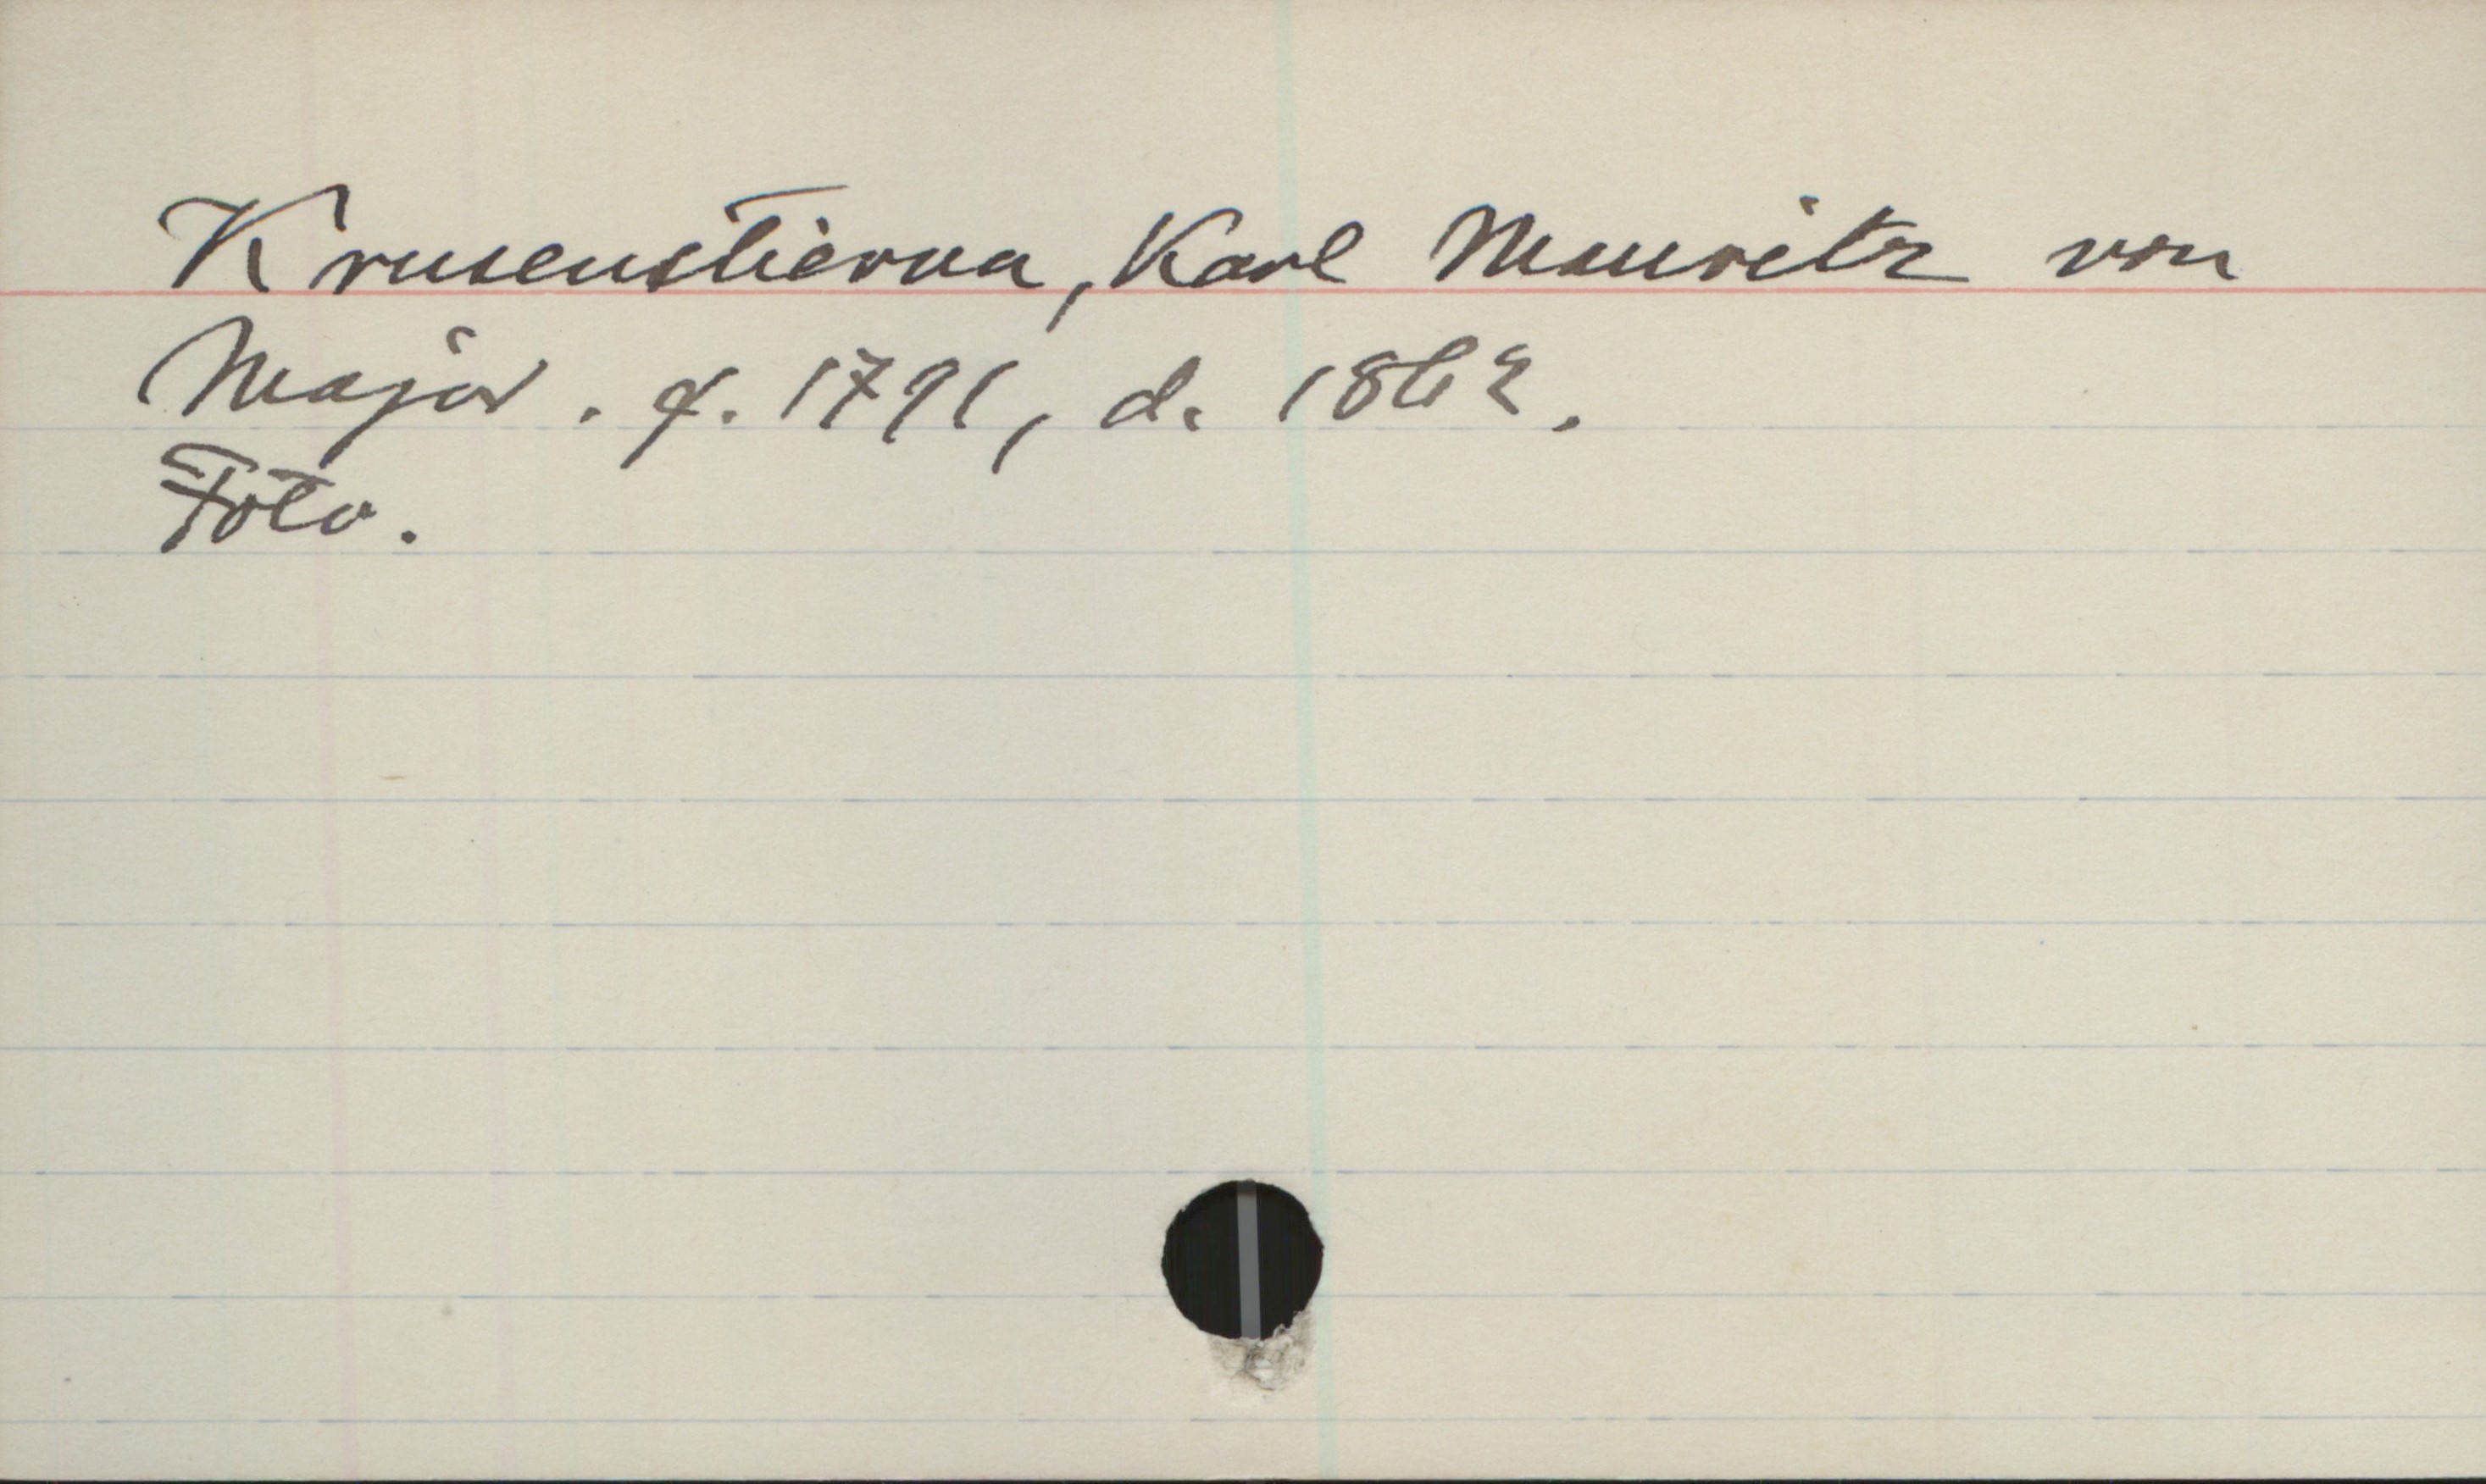 Krusenstierna, Karl Mauritz von
Major. f. 1791, d. 1862.
Foto.